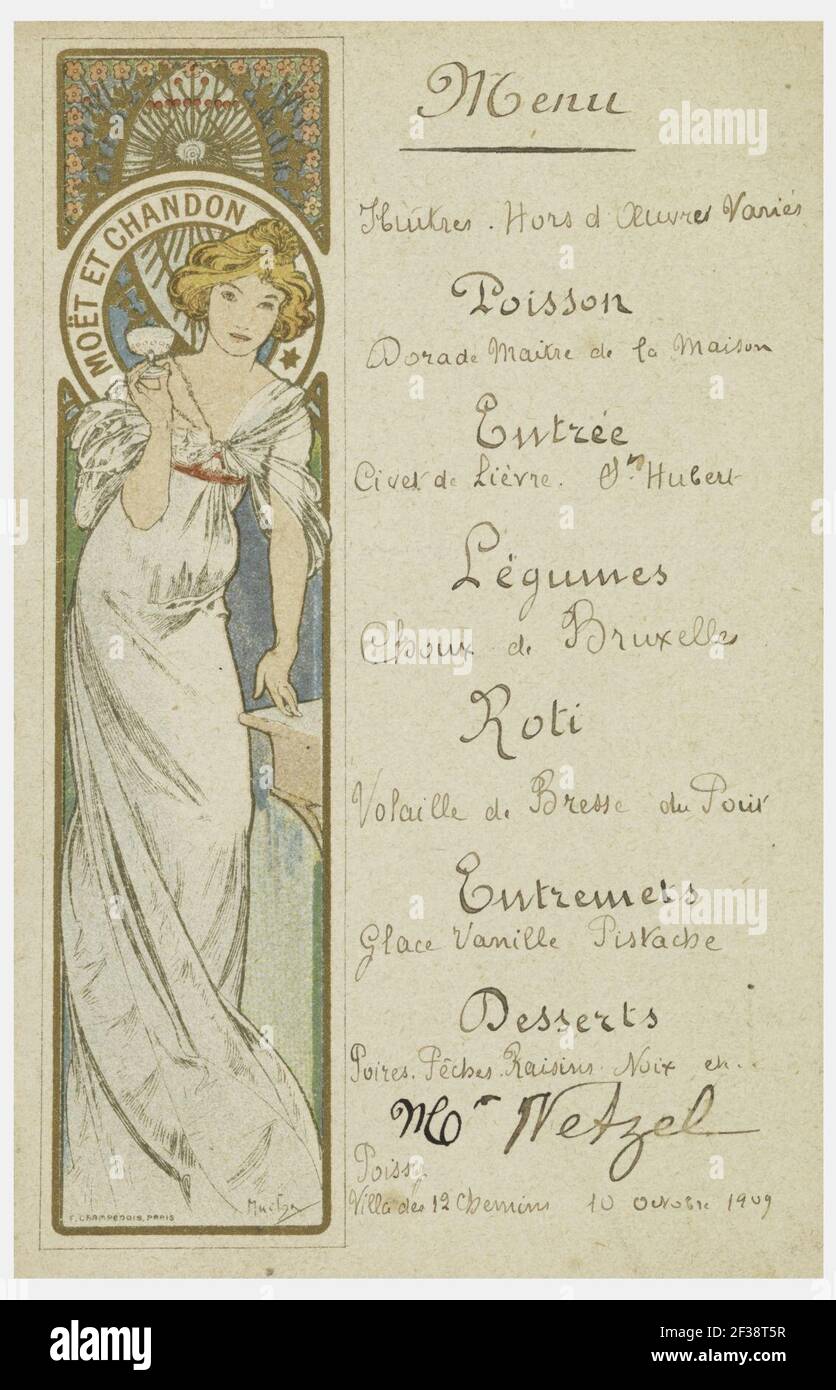 MOËT ET CHANDON
F. CHAMPENOIS, PARIS
Mucha
Menu
Huitres. Hors d'Œuvres Variés
Poisson
Dorade Maitre de la Maison
Entrée
Civet de Lièvre. St Hubert
Légumes
Choux de Bruxelles
Roti
Volaille de Bresse du Pouit
Entremets
Glace Vanille Pistache
Desserts
Poires. Pêches. Raisins. Noix etc..
Mr Wetzel
Poissy
Villa des 12 Chemins 10 Octobre 1909
alamy
Image ID: 2F38T5R
www.alamy.com